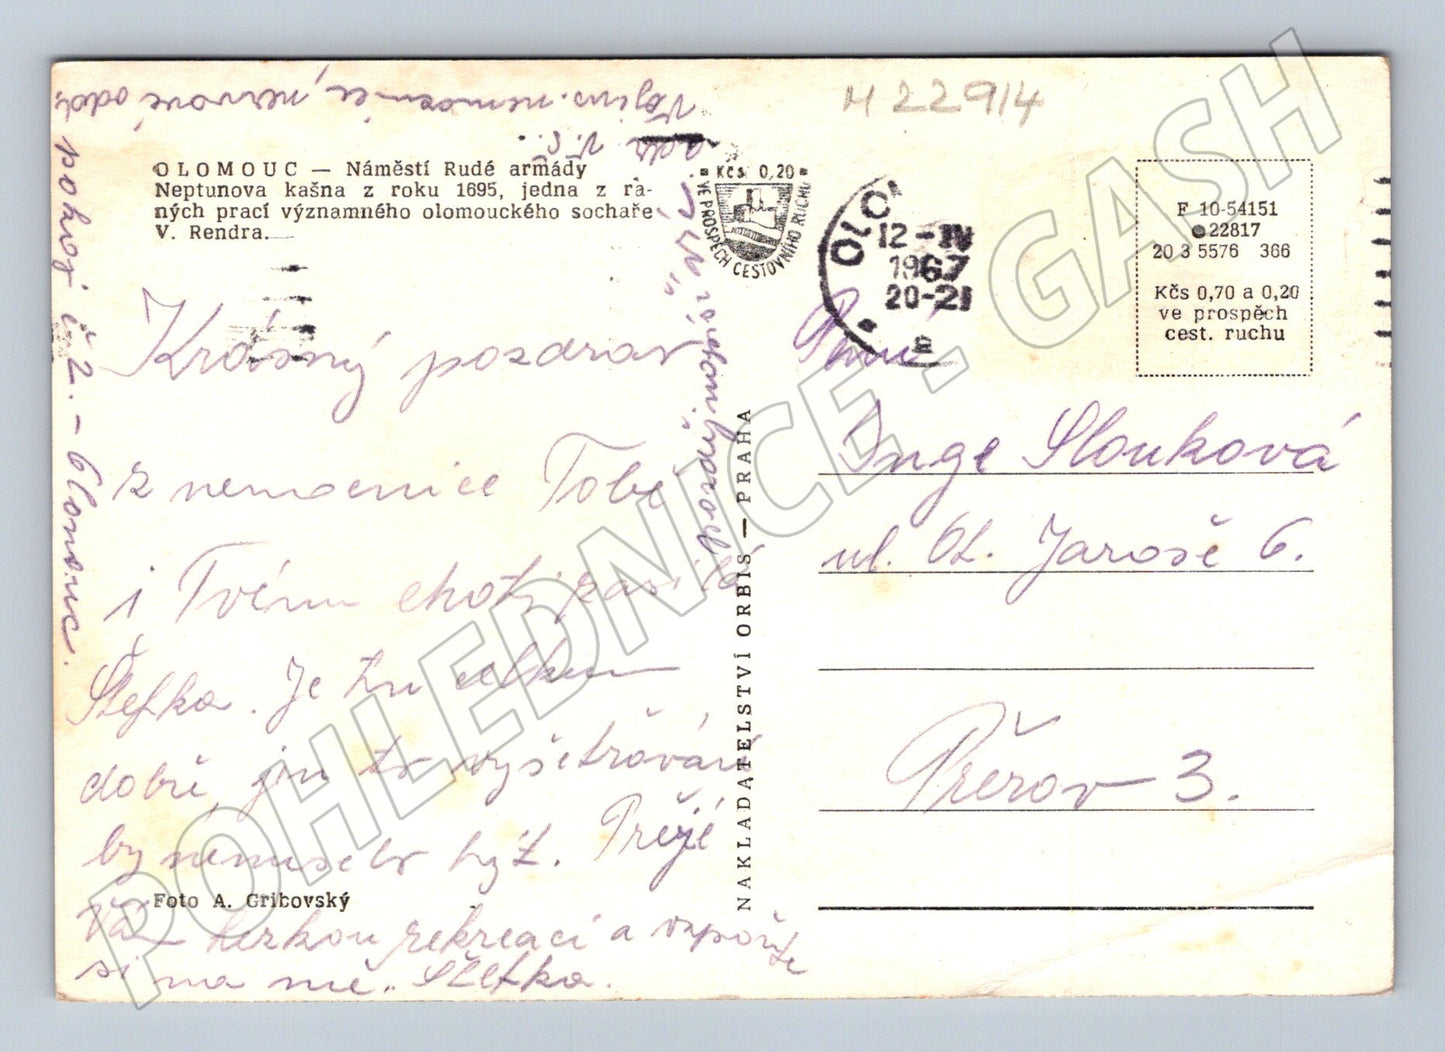 M 22914
Vojens. nemocnice, nervové odd.,
pokoj č 2. - Olomouc.
OLOMOUC — Náměstí Rudé armády
Neptunova kašna z roku 1695, jedna z ra-
ných prací významného olomouckého sochaře
V. Rendra.
Krásný pozdrav
z nemocnice Tobě
i Tvému choti zasílá
Štefka. Je tu celkem
dobře, jen to vyšetřování
by nemuselo být. Přeji
Vám hezkou rekreaci a vzpoměňte
si na mě. Štefka.
Foto A. Gribovský
Pozdravuj
NAKLADATELSTVÍ ORBIS — PRAHA
Kčs 0,20
VE PROSPĚCH CESTOVNÍHO RUCHU
OLO
12 -IV
1967
20-21
F 10-54151
22817
20 3 5576 366
Kčs 0,70 a 0,20
ve prospěch
cest. ruchu
Paní
Inge Slouková
ul. Ot. Jaroše 6.
Přerov 3.
POHLEDNICE - GASH